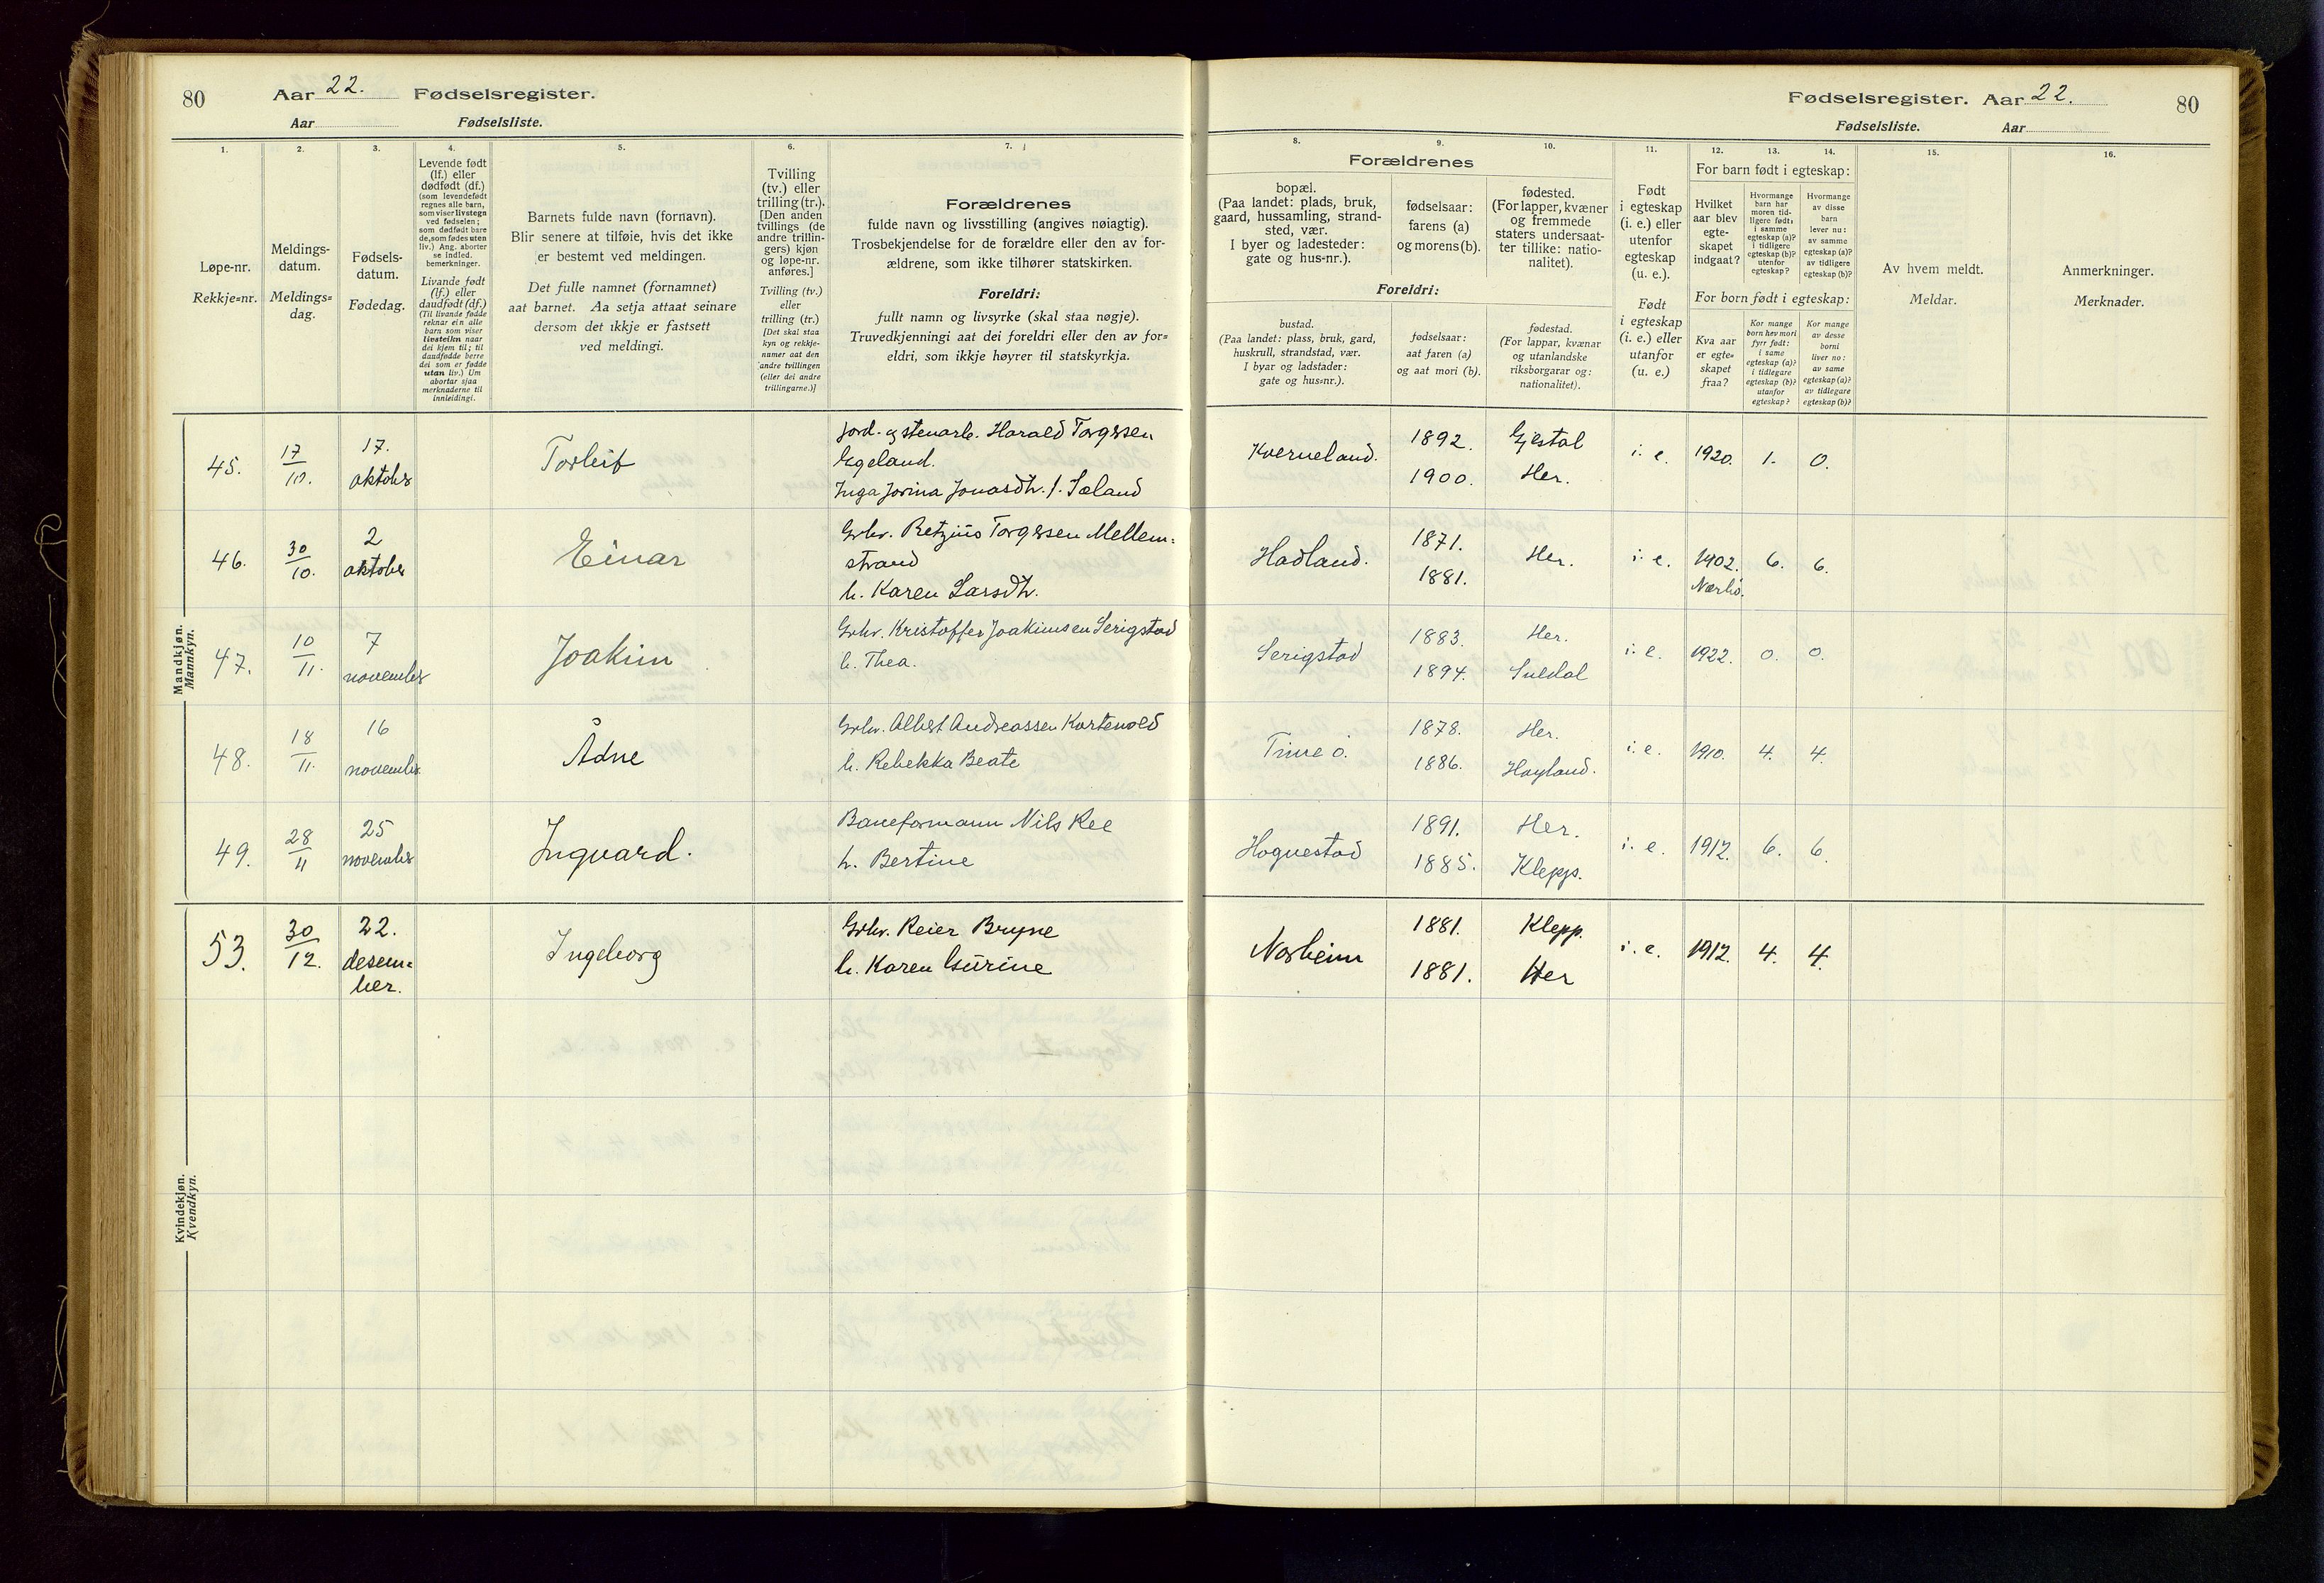 80
Aar 22. Fødselsregister.
Aar Fødselsliste.
1.
2.
3.
4.
5.
6.
7.
Løpe-nr.
Rekkje=nr.
Meldings-
datum.
Meldings=
dag.
Fødsels-
datum.
Fødedag.
Levende født
(lf.) eller
dødfødt (df.)
(som levendefødt
regnes alle barn,
som viser livstegn
ved fødselen;
som dødfødt bare
de, som fødes uten
liv.) Ang. aborter
se indled.
bemerkninger.
Livande født
(lf.) eller
daudfødt (df.)
(Til livande fødde
reknar ein alle
barn som viser
livsteikn naar
dei kjem til; til
daudfødde berre
dei som er fødde
utan liv.) Um
abortar sjaa
merknaderne til
innleidingi.
Barnets fulde navn (fornavn).
Blir senere at tilføie, hvis det ikke
er bestemt ved meldingen.
Det fulle namnet (fornamnet)
aat barnet. Aa setja attaat seinare
dersom det ikkje er fastsett
ved meldingi.
Tvilling
(tv.) eller
trilling (tr.).
[Den anden
tvillings (de
andre trillin-
gers) kjøn
og løpe-nr.
anføres.]
Tvilling (tv.)
eller
trilling (tr.)
[Det skal staa
kyn og rekkje-
numer aat den
andre tvillingen
(eller dei andre
trillingarne.)]
Forældrenes
fulde navn og livsstilling (angives nøiagtig).
Trosbekjendelse for de forældre eller den av for-
ældrene, som ikke tilhører statskirken.
Foreldri:
fullt namn og livsyrke (skal staa nøgje).
Truvedkjenningi aat dei foreldri eller den av for=
eldri, som ikkje høyrer til statskyrkja.
Mandkjøn.
Mannkyn.
45. 17/10. 17. oktober Torleif
Jord- og stenarb. Harald Torgersen
Egeland.
Inga Jorina Jonasdtr. f. Sæland
46. 30/10. 2 oktober Einar
Grbr. Retzius Torgersen Mellem=
strand
h. Karen Larsdtr.
47. 10/11. 7 november Joakim
Grbr. Kristoffer Joakimsen Serigstad
h. Thea.
48. 18/11. 16 november Ådne
Grbr. Albert Andreassen Kartevold
h. Rebekka Beate
49. 28/11 25 november Ingvard.
Baneformann Nils Ree
h. Bertine
53. 30/12. 22. desem=
ber. Ingeborg
Grbr. Reier Bryne
h. Karen Gurine
Kvindekjøn.
Kvendkyn.
Fødselsregister. Aar 22. 80
Fødselsliste. Aar
8.
9.
10.
11.
12.
13.
14.
15.
16.
Forældrenes
bopæl.
(Paa landet: plads, bruk,
gaard, hussamling, strand-
sted, vær.
I byer og ladesteder:
gate og hus-nr.).
fødselsaar:
farens (a)
og morens (b).
fødested.
(For lapper, kvæner
og fremmede
staters undersaat-
ter tillike: natio-
nalitet).
Foreldri:
bustad.
(Paa landet: plass, bruk, gard,
huskrull, strandstad, vær.
I byar og ladstader:
gate og hus=nr.).
fødselsaar:
aat faren (a)
og aat mori (b).
fødestad.
(For lappar, kvænar
og utanlandske
riksborgarar og:
nationalitet).
Født
i egteskap
(i. e.) eller
utenfor
egteskap
(u. e.).
Født
i egteskap
(i. e.) eller
utanfor
(u. e.)
For barn født i egteskap:
Hvilket
aar blev
egte-
skapet
indgaat?
Hvormange
barn har
moren tid-
ligere født:
i samme
egteskap (a)?
i tidligere
egteskap (b)?
utenfor
egteskap?
Hvormange
av disse
barn
lever nu:
av samme
egteskap (a)?
av tidligere
egteskap (b)?
For born født i egteskap:
Kva aar
er egte=
skapet
fraa?
Kor mange
born hev mori
fyrr født:
i same
egteskap (a)?
i tidlegare
egteskap (b)?
utanfor
egteskap?
Kor mange
av desse
borni
liver no:
av same
egteskap (a)?
av tidlegare
egteskap (b)?
Av hvem meldt.
Meldar.
Anmerkninger.
Merknader.
Kverneland. 1892. Gjestal i. e. 1920. 1. 0.
1900. Her.
Hadland. 1871. Her. i. e. 1902. 6. 6.
1881. Nærbø.
Serigstad 1883. Her. i. e. 1922. 0. 0.
1894. Suldal
Time ø. 1878. Her. i. e. 1910. 4. 4.
1886. Høyland.
Hognestad 1891. Her. i. e. 1912. 6. 6.
1885. Klepp.
Norheim 1881. Klepp. i. e. 1912. 4. 4.
1881. Her